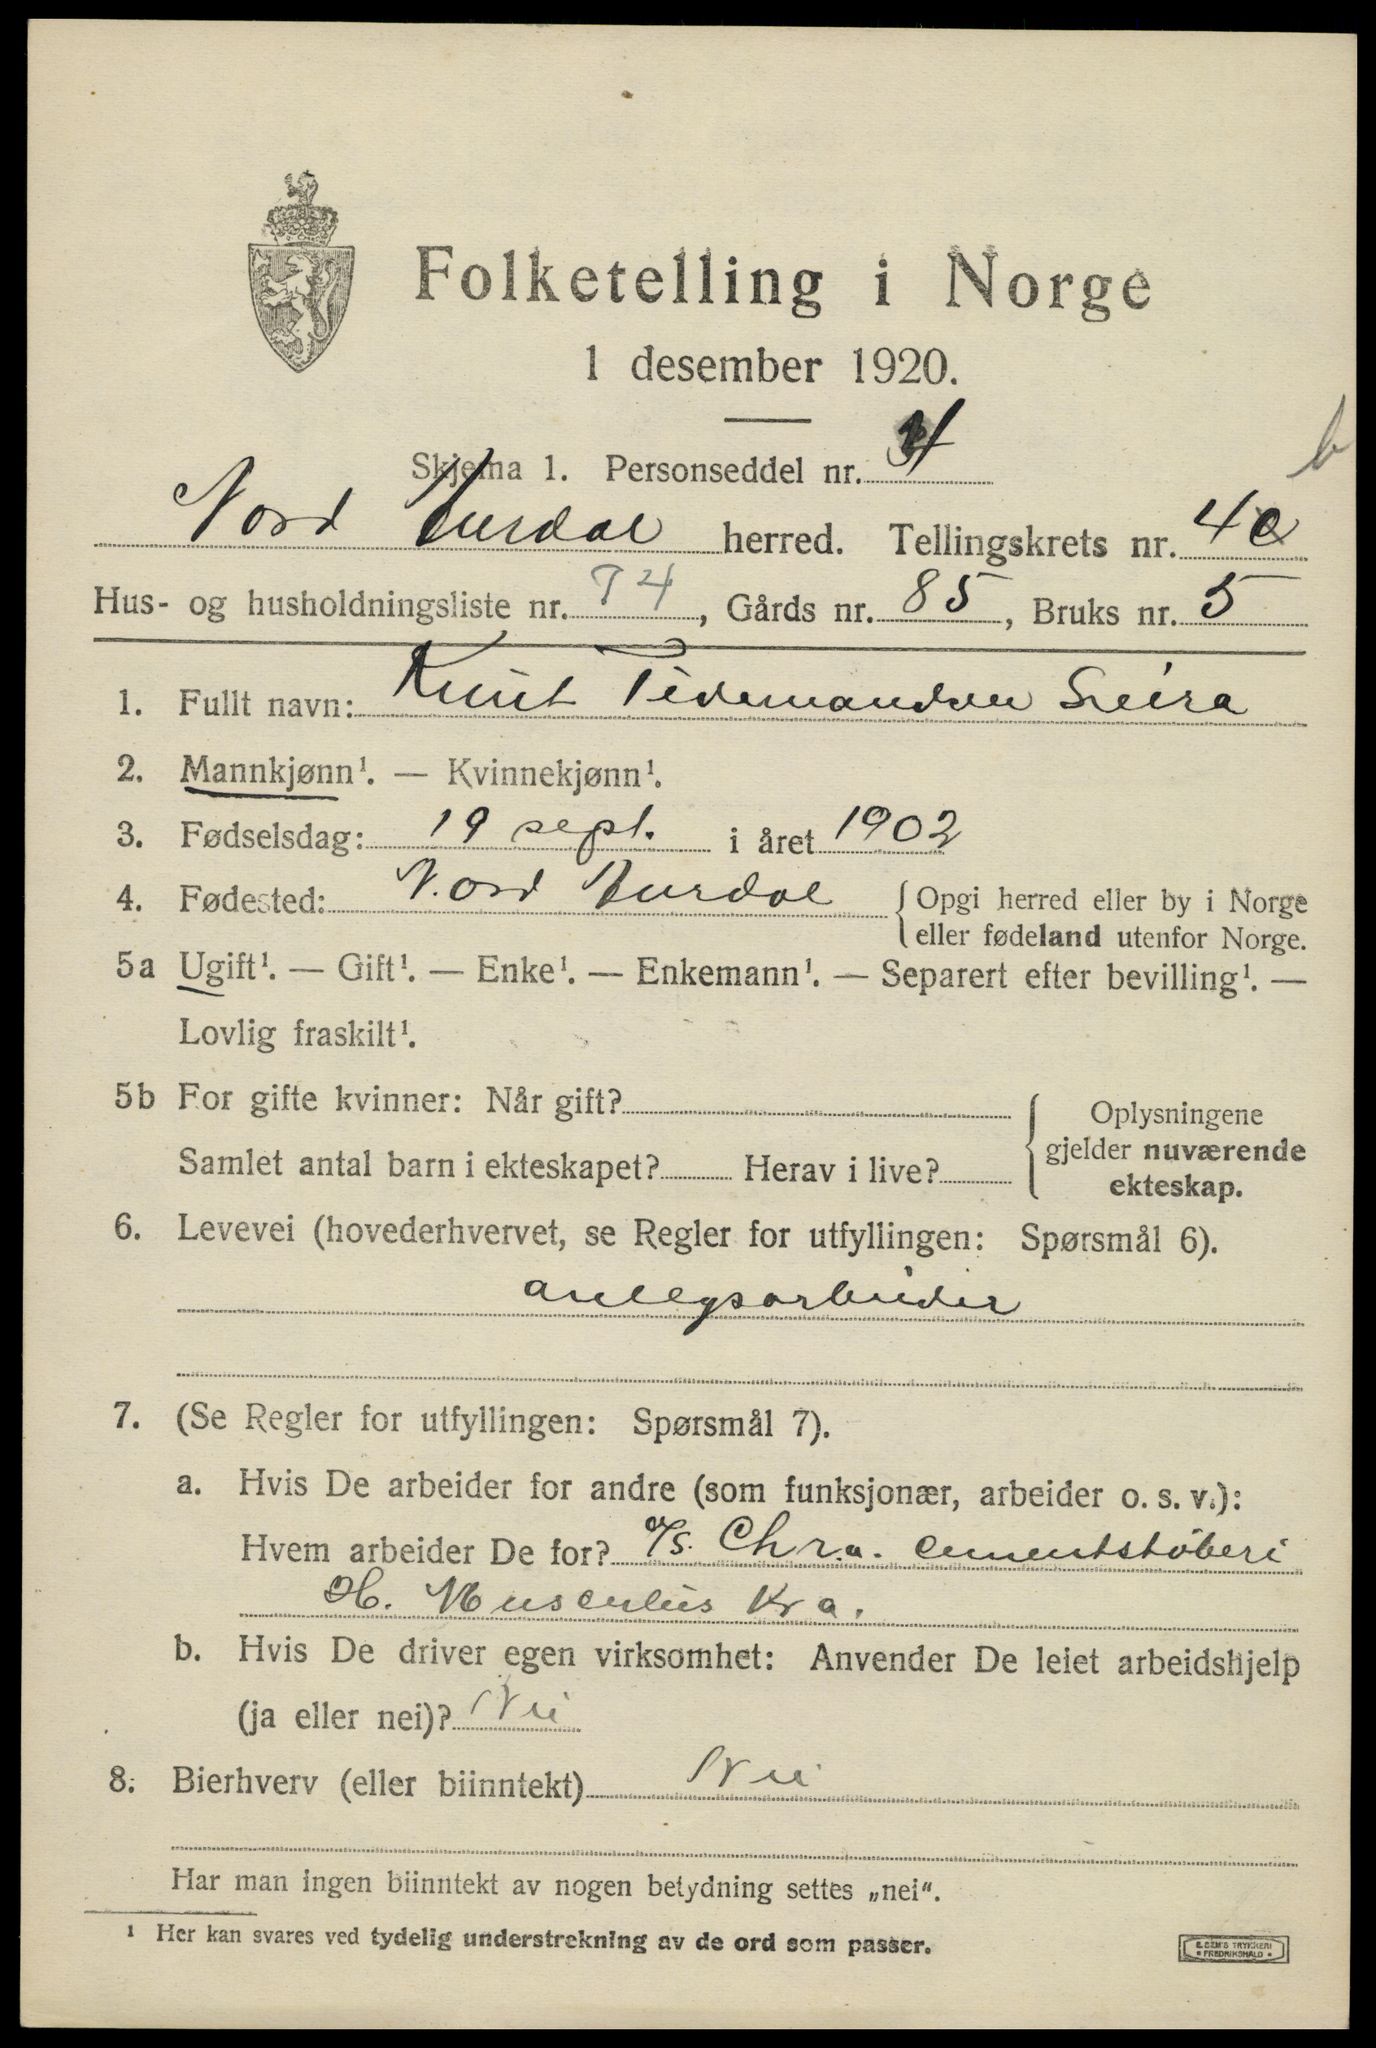 Folketelling i Norge
1 desember 1920.
Skjema 1. Personseddel nr. 4
b
Nord Aurdal herred. Tellingskrets nr. 4
Hus- og husholdningsliste nr. 74, Gårds nr. 85, Bruks nr. 5
1. Fullt navn: Knut Tidemandsen Leira
2. Mannkjønn¹. — Kvinnekjønn¹.
3. Fødselsdag: 19 sept. i året 1902
4. Fødested: Nord Aurdal { Opgi herred eller by i Norge
eller fødeland utenfor Norge.
5a Ugift¹. — Gift¹. — Enke¹. — Enkemann¹. — Separert efter bevilling¹. —
Lovlig fraskilt¹.
5b For gifte kvinner: Når gift?
Samlet antal barn i ekteskapet? Herav i live?
{ Oplysningene
gjelder nuværende
ekteskap.
6. Levevei (hovederhvervet, se Regler for utfyllingen: Spørsmål 6).
anlegsarbeider
7. (Se Regler for utfyllingen: Spørsmål 7).
a. Hvis De arbeider for andre (som funksjonær, arbeider o. s. v.):
Hvem arbeider De for? A/S. Chr.a. cementstøberi
H. Musculus Kra.
b. Hvis De driver egen virksomhet: Anvender De leiet arbeidshjelp
(ja eller nei)? Nei
8. Bierhverv (eller biinntekt) Nei
Har man ingen biinntekt av nogen betydning settes „nei“.
¹ Her kan svares ved tydelig understrekning av de ord som passer.
E. SEM'S TRYKKERI
• FREDRIKSHALD •